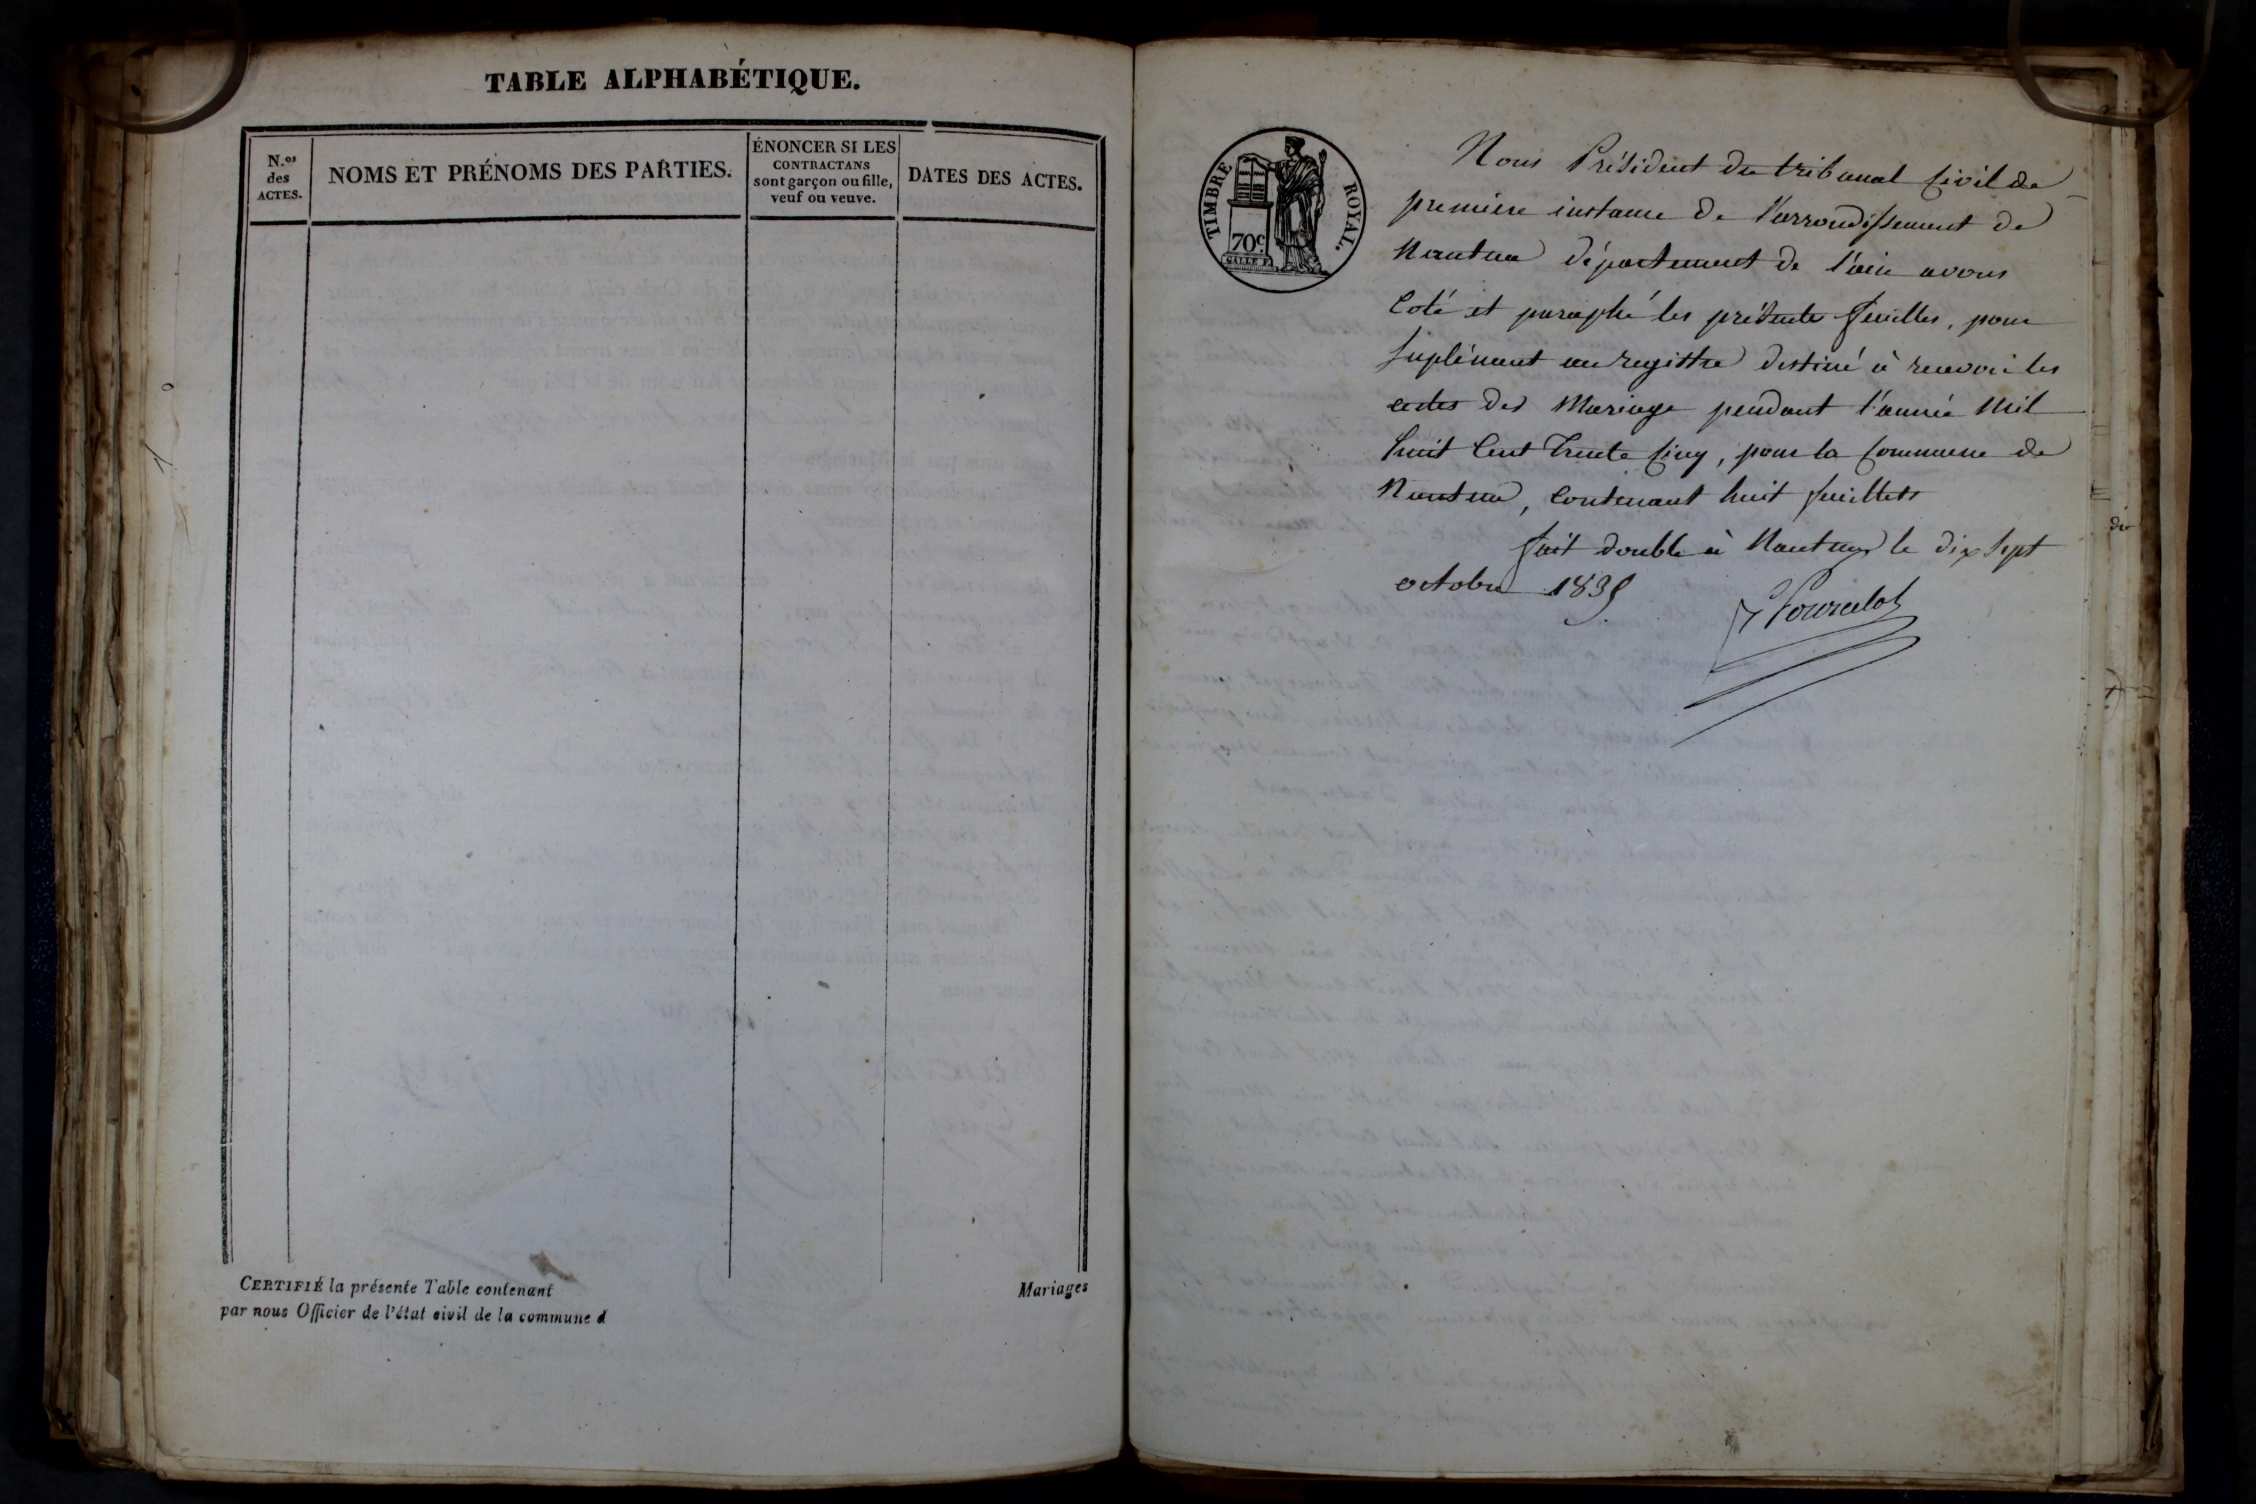 TABLE ALPHABÉTIQUE.
N.os
des
ACTES.
NOMS ET PRÉNOMS DES PARTIES.
ÉNONCER SI LES
CONTRACTANS
sont garçon ou fille,
veuf ou veuve.
DATES DES ACTES.
CERTIFIÉ la présente Table contenant
Mariages
par nous Officier de l'état civil de la commune d
TIMBRE ROYAL.
70c
GALLE F.
Nous Président du tribunal Civil de
premiere instance de l'arrondissement de
Nantua département de l'ain avons
Coté et paraphé les présente feuilles, pour
suplément au registre destiné à recevoir les
actes des Mariage pendant l'année Mil
huit Cent Trente Cinq, pour la Commune de
Nantua, Contenant huit feuillets
fait double à Nantua le dix sept
octobre 1835.